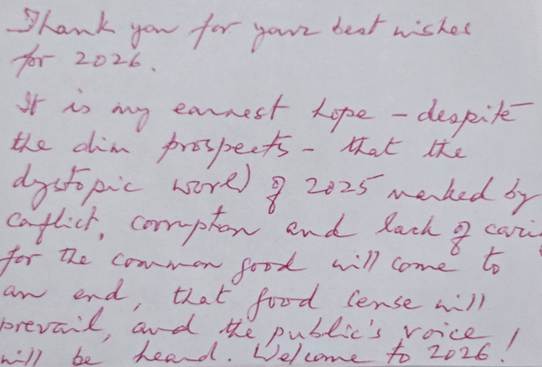 Thank you for your best wishes
for 2026.
It is my earnest hope - despite
the dim prospects - that the
dystopic world of 2025 marked by
conflict, corruption and lack of
for the common good will come to
an end, that good sense will
prevail, and the public's voice
will be heard. Welcome to 2026!